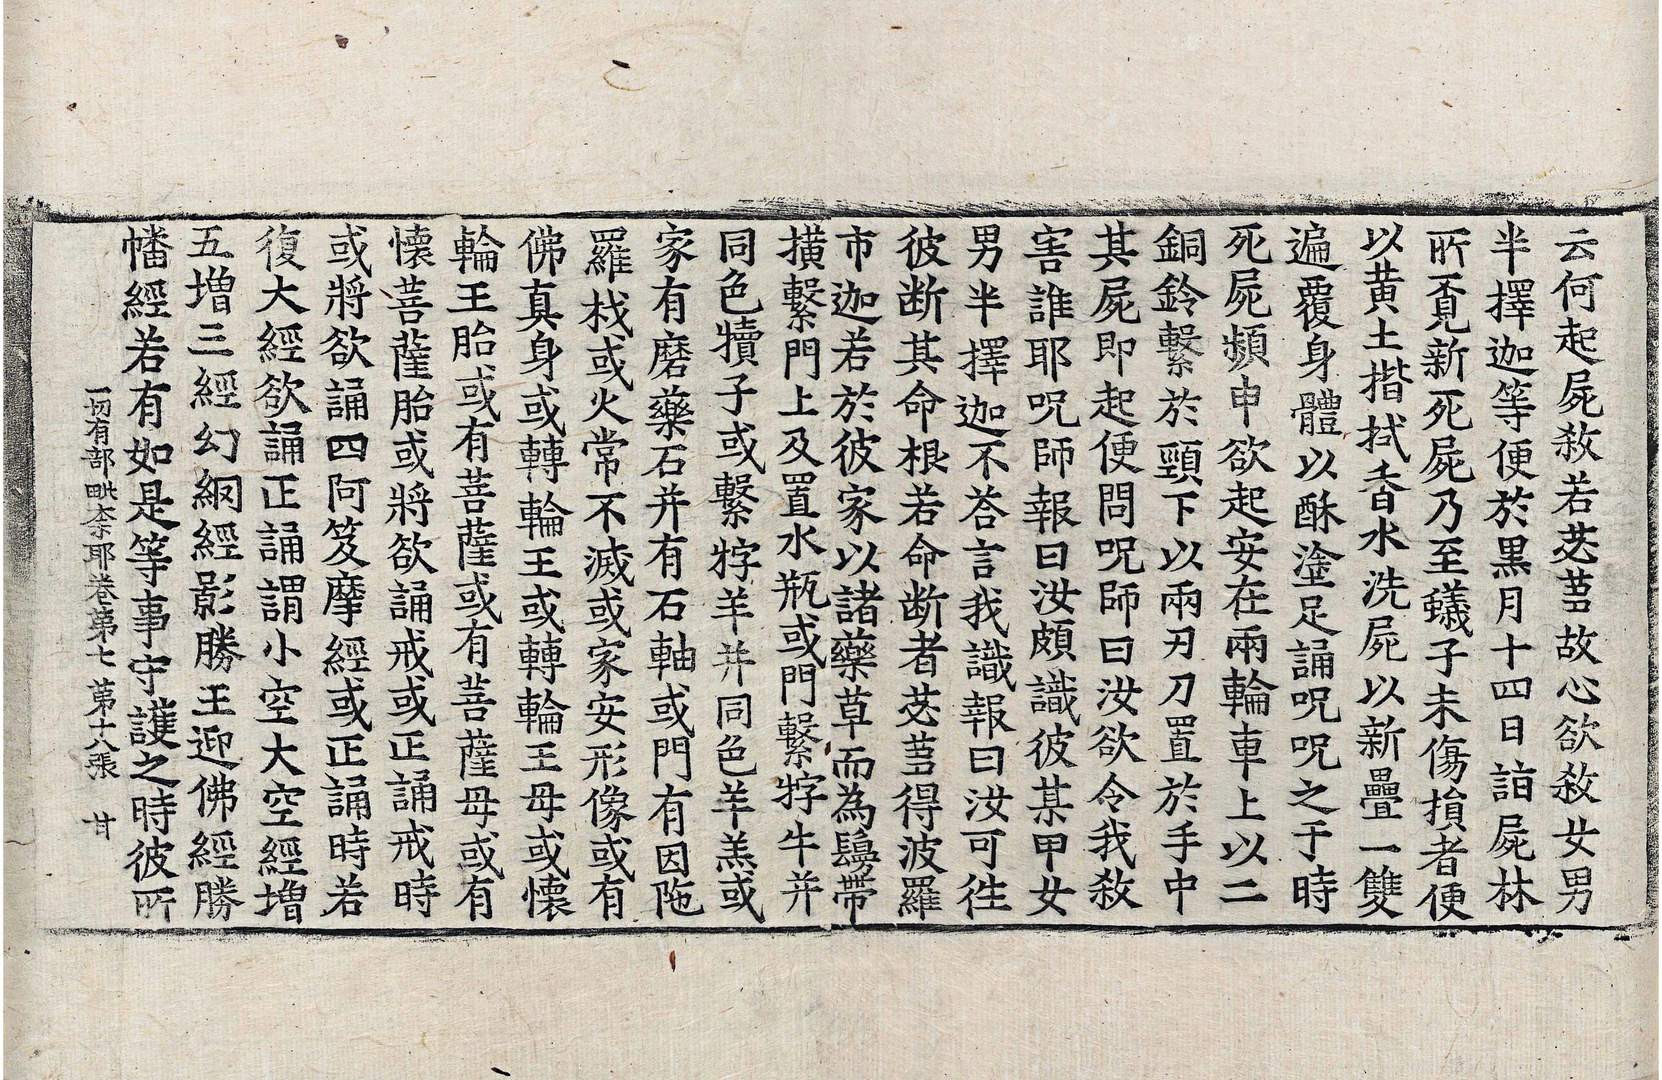 云何起屍殺若苾芻故心欲殺女男
半擇迦等便於黑月十四日詣屍林
所覓新死屍乃至蟻子未傷損者便
以黃土揩拭香水洗屍以新疊一雙
遍覆身體以酥塗足誦呪呪之于時
死屍頻申欲起安在兩輪車上以二
銅鈴繫於頸下以兩刃刀置於手中
其屍即起便問呪師曰汝欲令我殺
害誰耶呪師報曰汝頗識彼某甲女
男半擇迦不荅言我識報曰汝可往
彼断其命根若命断者苾芻得波羅
市迦若於彼家以諸藥草而為鬘帶
撗繫門上及置水瓶或門繫牸牛并
同色犢子或繫牸羊并同色羊羔或
家有磨藥石并有石軸或門有因陁
羅栈或火常不滅或家安形像或有
佛真身或轉輪王或轉輪王母或懷
輪王胎或有菩薩或有菩薩母或有
懐菩薩胎或將欲誦戒或正誦戒時
或將欲誦四阿笈摩經或正誦時若
復大經欲誦正誦謂小空大空經增
五增三經幻網經影勝王迎佛經勝
幡經若有如是等事守護之時彼所
一切有部毗奈耶卷第七 第十八張 甘